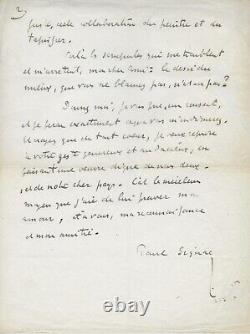 2)
juste, cette collaboration du peintre et du
tapissier.
Voilà les scrupules qui me troublent
et m'arrêtent, mon cher ami: le désir du
mieux, que vous ne blâmez pas, n'est-ce pas?
Dans moi, je vous prie, un conseil,
et je ferai exactement ce que vous m'
Et croyez que de tout coeur, je veux répondre
à votre geste généreux et au Jacéen, en
faisant une oeuvre digne de vous deux.
et de notre cher pays. C'est le meilleur
moyen que j'aie de lui prouver mon
amour, et à vous, ma reconnaissance
et mon amitié.
Paul Signac